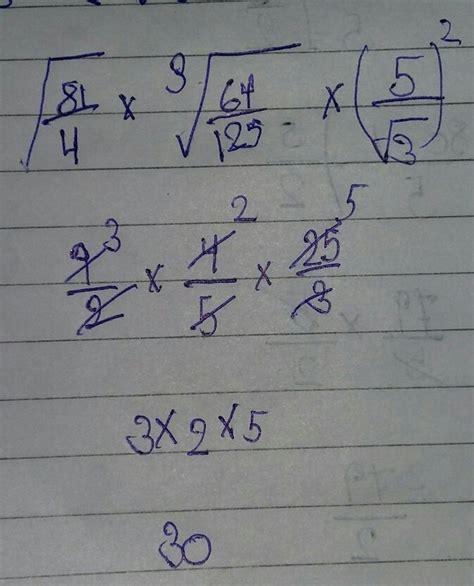 √(81/4) × ∛(64/125) × (5/√3)²
9/2 3 × 4/5 2 × 25/3 5
3×2×5
30